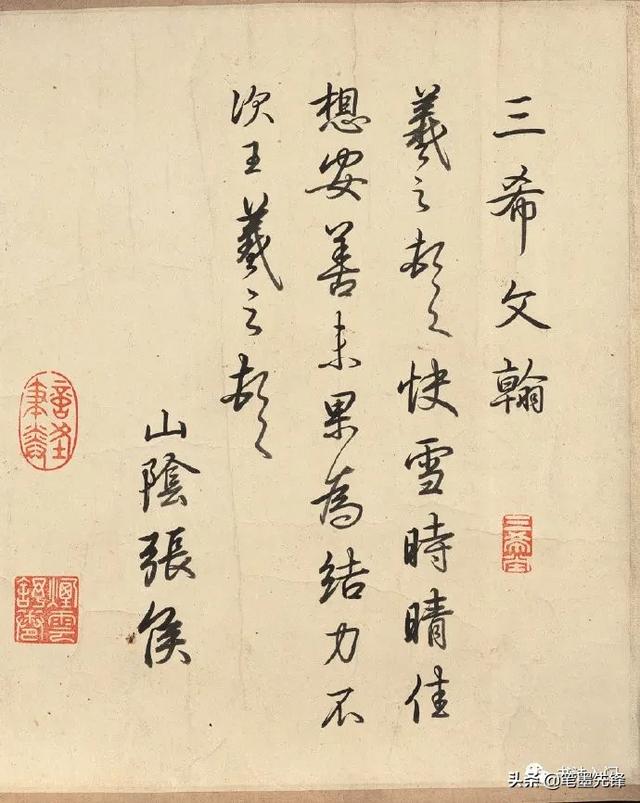 三希文翰
羲之頓首快雪時晴佳
想安善未果為結力不
次王羲之頓首
山陰張侯
三希堂
煙雲舒卷
头条@笔墨先锋